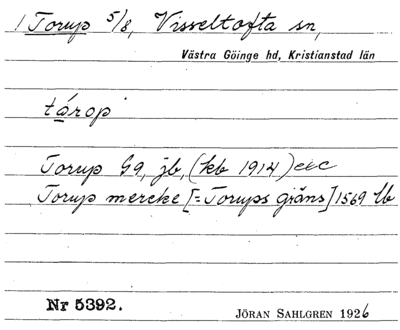 1 Torup 5/8, Visseltofta sn,
Västra Göinge hd, Kristianstad län
tárop
Torup Gg, jb, (kb 1914) etc
Torup mercke [= Torups gräns] 1569 lb
Nr 5392.
JÖRAN SAHLGREN 1926